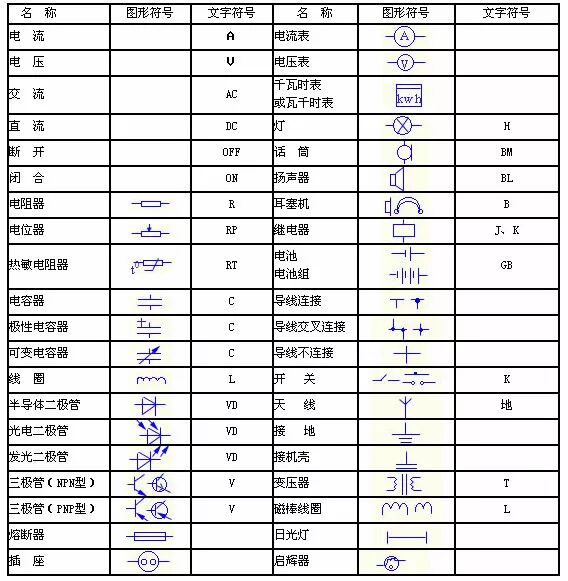 名 称 图形符号 文字符号 名 称 图形符号 文字符号
电 流 A 电流表 A
电 压 V 电压表 V
交 流 AC 千瓦时表 kwh
或瓦千时表
直 流 DC 灯 H
断 开 OFF 话 筒 BM
闭 合 ON 扬声器 BL
电阻器 R 耳塞机 B
电位器 RP 继电器 J、K
热敏电阻器 t° RT 电池 GB
电池组
电容器 C 导线连接
极性电容器 + C 导线交叉连接
可变电容器 C 导线不连接
线 圈 L 开 关 K
半导体二极管 VD 天 线 地
光电二极管 VD 接 地
发光二极管 VD 接机壳
三极管(NPN型) V 变压器 T
三极管(PNP型) V 磁棒线圈 L
熔断器 日光灯
插 座 启辉器